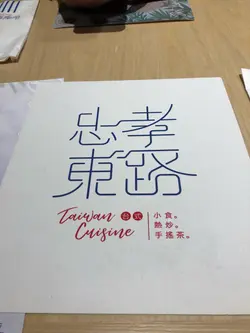 忠孝
東路
Taiwan 台式
Cuisine
小食。
熱炒。
手搖茶。